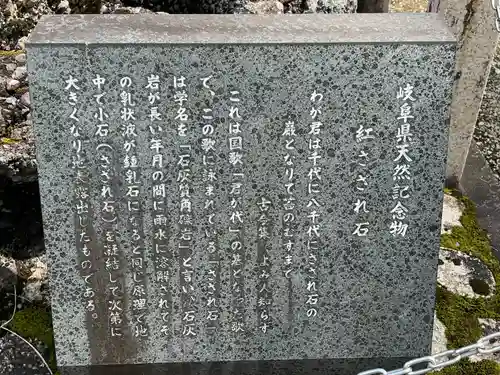 岐阜県天然記念物
紅さざれ石
わが君は千代に八千代にさざれ石の
巌となりて苔のむすまで
古今集 よみ人知らず
これは国歌「君が代」の基となった歌
で、この歌に詠まれている「さざれ石」
は学名を「石灰質角礫岩」と言い、石灰
岩が長い年月の間に雨水に溶解されてそ
の乳状液が鍾乳石になると同じ原理で地
中で小石(さざれ石)を凝結して次第に
大きくなり地表に露出したものである。